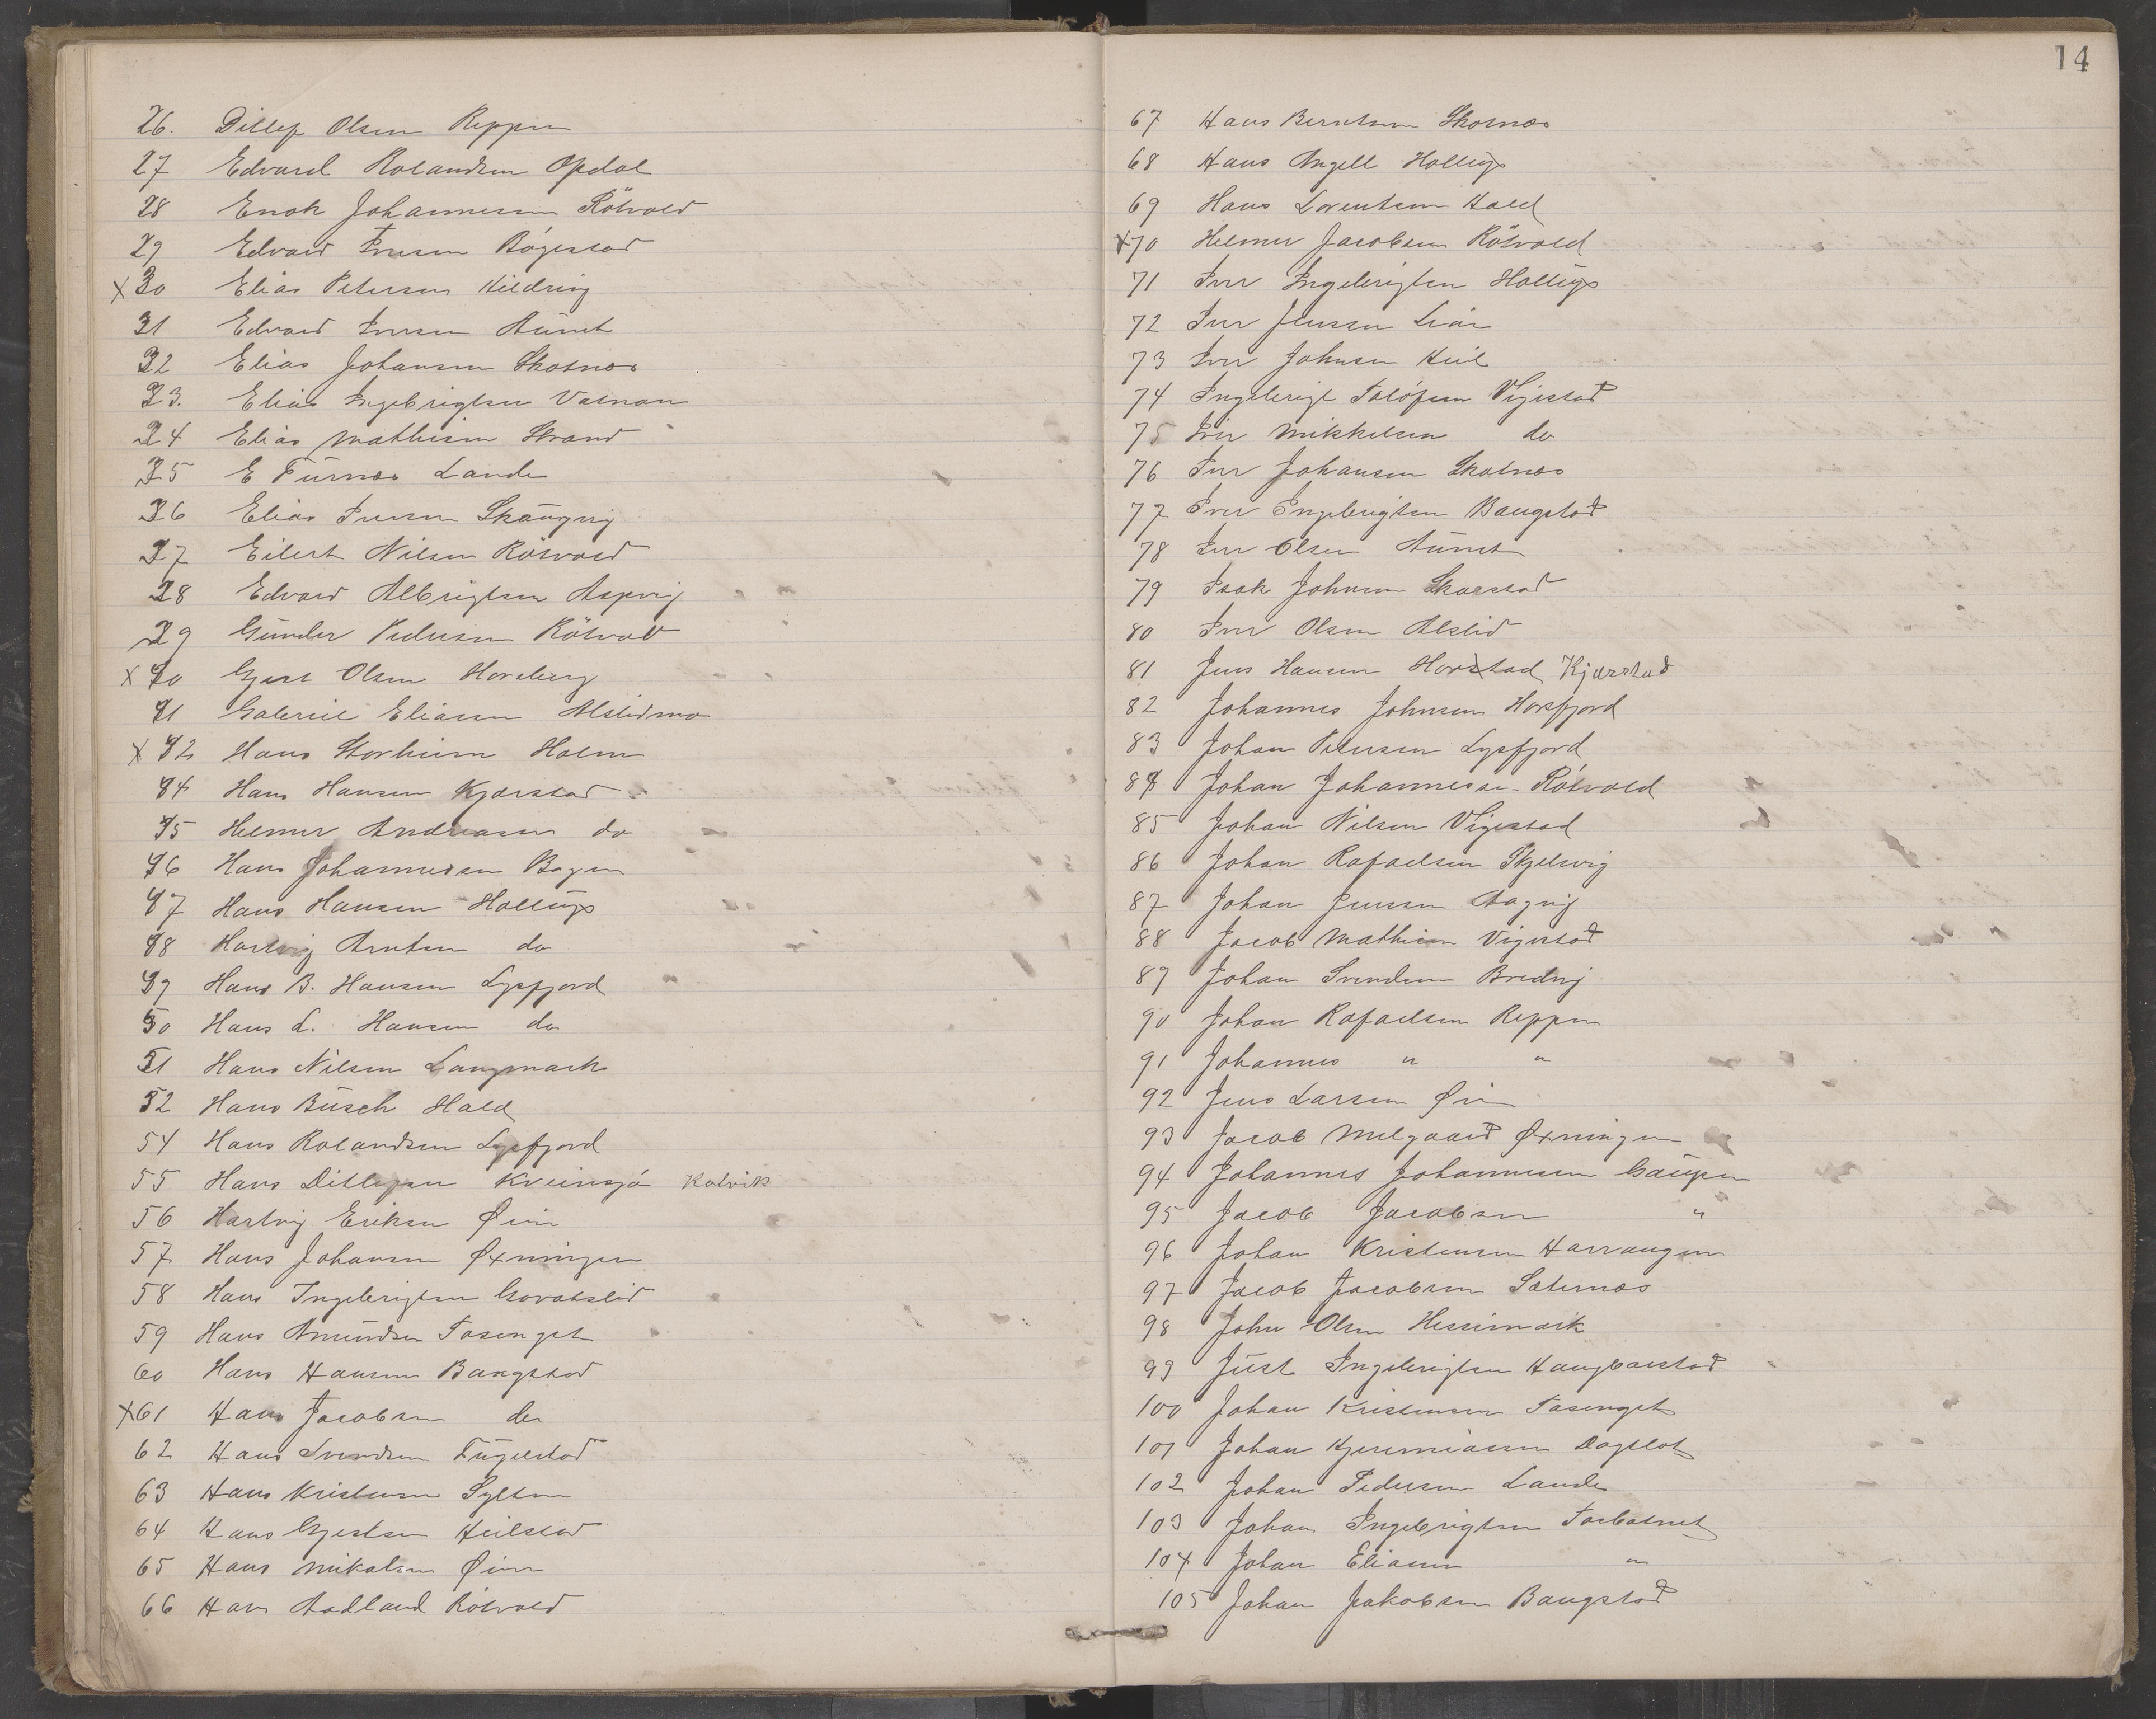 14
26. Ditlef Olsen Reppen
27 Edvard Rolandsen Opdal
28 Enok Johannesen Rötvold
29 Edvard Iversen Bögestad
x 30 Elias Petersen Kildring
31 Edvard Iversen Aunet
32 Elias Johansen Skotnes
33. Elias Ingebrigtsen Vatnan
34 Elias Mathisen Strand
35 E Furnes Lande
36 Elias Iversen
37 Eilert Nilsen Rötvold
38 Edvard Albrigtsen
39 Gunder Pedersen Rötvold
x 40 Gjert Olsen Horsberg
41 Gabriel Eliasen Alslidmo
x 42 Hans Storheim Holm
44 Hans Hansen Kjærstad
45 Helmer Andreasen do
46 Hans Johannesen Bogen
47 Hans Hansen
48 Hartvig Arntsen do
49 Hans B. Hansen Lysfjord
50 Hans L. Hansen do
51 Hans Nilsen Langmark
52 Hans Busch Hald
54 Hans Rolandsen Lysfjord
55 Hans Ditlefsen Kveinsjö Kalvik
56 Hartvig Eriksen Øien
57 Hans Johansen Øxningen
58 Hans Ingebrigtsen
59 Hans Amundsen Fosenget
60 Hans Hansen Bangstad
x 61 Hans Jacobsen do
62 Hans Svendsen Fuglestad
63 Hans Kristensen Sylten
64 Hans Gjertsen Heilstad
65 Hans Mikalsen Øien
66 Hans Aadland Rötvold
67 Hans Berntsen Skotnes
68 Hans Angell
69 Hans Lorentsen Hald
x 70 Helmer Jacobsen Rötvold
71 Iver Ingebrigtsen
72 Iver Jensen Lian
73 Iver Johnsen
74 Ingebrigt Tolöfsen Vigestad
75 Iver Mikkelsen do
76 Iver Johansen Skotnes
77 Iver Ingebrigtsen Bangstad
78 Iver Olsen Aunet
79 Isak Johnsen Skarstad
80 Iver Olsen Alslid
81 Jens Hansen Horstad Kjærstad
82 Johannes Johnsen Horsfjord
83 Johan Petersen Lysfjord
84 Johan Johannessen Rötvold
85 Johan Nilsen Vigestad
86 Johan Rafaelsen Skjelsvig
87 Johan Jensen Aagvig
88 Jacob Mathisen Vigestad
89 Johan Svendsen Bredvig
90 Johan Rafaelsen Reppen
91 Johannes " "
92 Jens Larsen Øien
93 Jacob Melgaard Øxningen
94 Johannes Johannesen Gaupen
95 Jacob Jacobsen "
96 Johan Kristensen Harrangen
97 Jacob Jacobsen Sæternes
98 John Olsen Hessemark
99 Just Ingebrigtsen Haugbarstad
100 Johan Kristensen Fosenget
101 Johan Hjeremiasen Dagslot
102 Johan Pedersen Lande
103 Johan Ingebrigtsen Forbotnet
104 Johan Eliasen "
105 Johan Jakobsen Bangstad